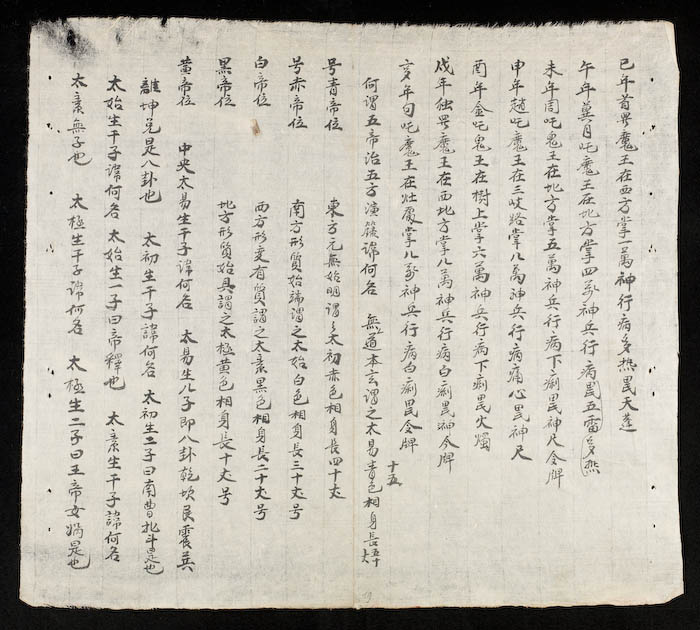 巳年首畏魔王在西方掌一萬神行病多热畏天蓬
午年莫月吒魔王在地方掌四万神兵行病畏五雷多热
未年周吒鬼王在地方掌五萬神兵行病下痢畏神尺令牌
申年趙吒魔王在三岐路掌八萬神兵行病痛心畏神尺
酉年金吒鬼王在樹上掌六萬神兵行病下痢畏火燭
戌年独畏魔王在西地方掌八萬神兵行病白痢畏神令牌
亥年句吒魔王在灶處掌八万神兵行病白痢畏令牌
何謂五帝治五方演籙諱何名 無道本玄謂之太易青色相身長五十丈
十五
号青帝位 東方元無始明謂之太初赤色相身長四十丈
号赤帝位 南方形質始端謂之太始白色相身長三十丈号
白帝位 西方形变有質謂之太素黑色相身長二十丈号
黑帝位 地方形質始具謂之太極黄色相身長十丈号
黄帝位 中央太易生干子諱何名 太易生八子即八卦乾坎艮震巽
離坤兑是八卦也 太初生干子諱何名 太初生二子曰南曹北斗是也
太始生干子諱何名 太始生一子曰帝釋也 太素生干子諱何名
太素無子也 太極生干子諱何名 太極生二子曰王帝女媧是也